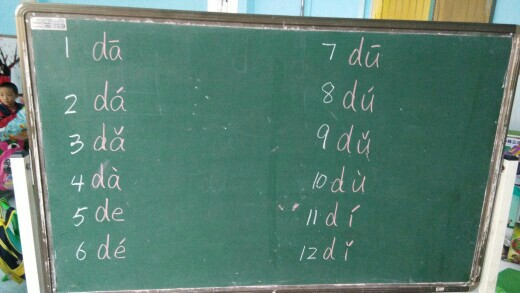 1 dā
2 dá
3 dǎ
4 dà
5 de
6 dé
7 dū
8 dú
9 dǔ
10 dù
11 dí
12 dǐ